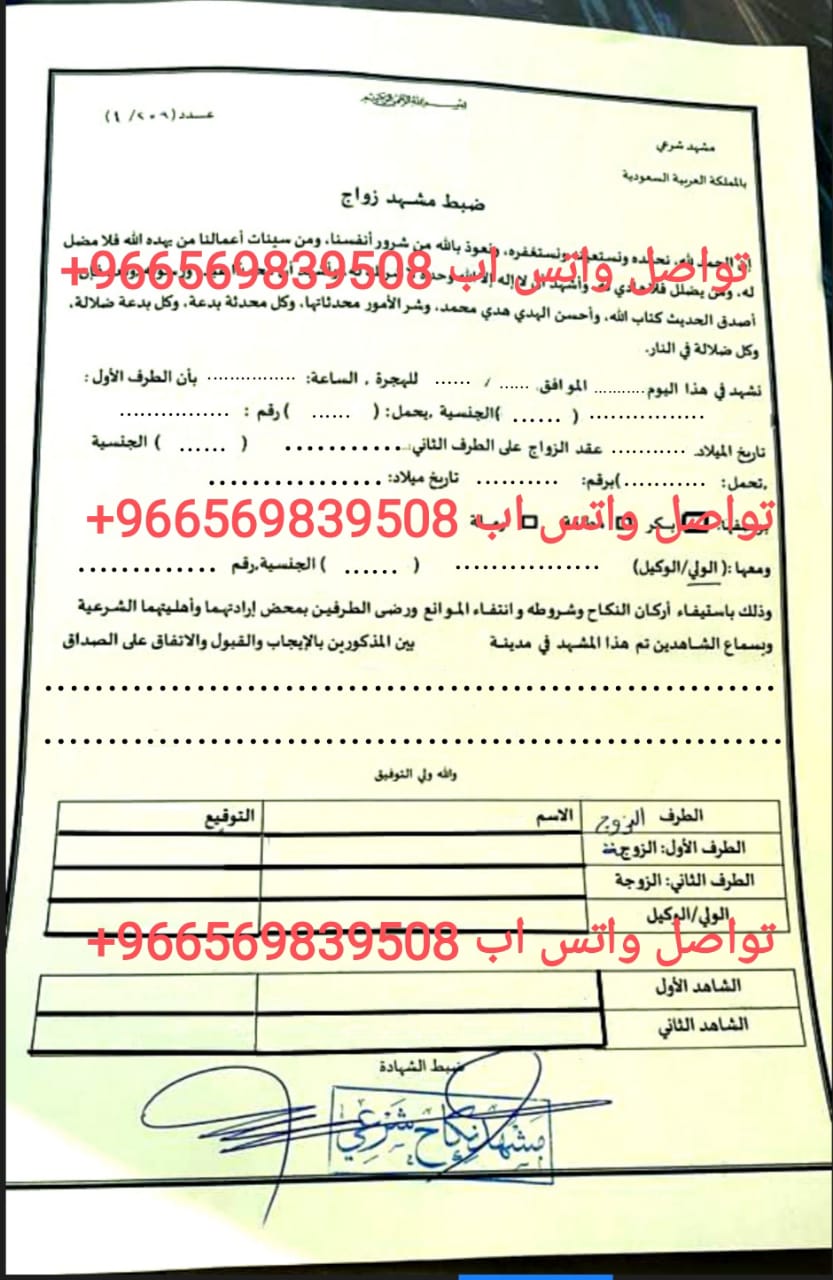 بسم الله الرحمن الرحيم
عدد (٢٠٦/ ٩)
مشهد شرعي
بالمملكة العربية السعودية
ضبط مشهد زواج
إن الحمد لله، نحمده ونستعينه ونستغفره، ونعوذ بالله من شرور أنفسنا، ومن سيئات أعمالنا من يهده الله فلا مضل
تواصل واتس اب 966569839508+
له، ومن يضلل فلا هادي له وأشهد أن لا إله إلا الله وحده لا
أصدق الحديث كتاب الله، وأحسن الهدي هدي محمد، وشر الأمور محدثاتها، وكل محدثة بدعة، وكل بدعة ضلالة،
وكل ضلالة في النار.
نشهد في هذا اليوم........... الموافق ...... / ...... للهجرة , الساعة: ............... بأن الطرف الأول:
.................. ( ...... )الجنسية ,يحمل: ( ...... )رقم : .................
تاريخ الميلاد ............ عقد الزواج على الطرف الثاني: ............ ( ...... ) الجنسية
,تحمل: ............)برقم: ............ تاريخ ميلاد: ..................
تواصل واتس اب 966569839508+
بكر
ومعها :( الولي/الوكيل) .................. ( ...... ) الجنسية,رقم ..............
وذلك باستيفاء أركان النكاح وشروطه وانتفاء الموانع ورضى الطرفين بمحض إرادتهما وأهليتهما الشرعية
وبسماع الشاهدين تم هذا المشهد في مدينة بين المذكورين بالإيجاب والقبول والاتفاق على الصداق
والله ولي التوفيق
الطرف الزوج الاسم التوقيع
الطرف الأول: الزوج
الطرف الثاني: الزوجة
الولي/الوكيل
تواصل واتس اب 966569839508+
الشاهد الأول
الشاهد الثاني
ضبط الشهادة
مشهد نكاح شرعي